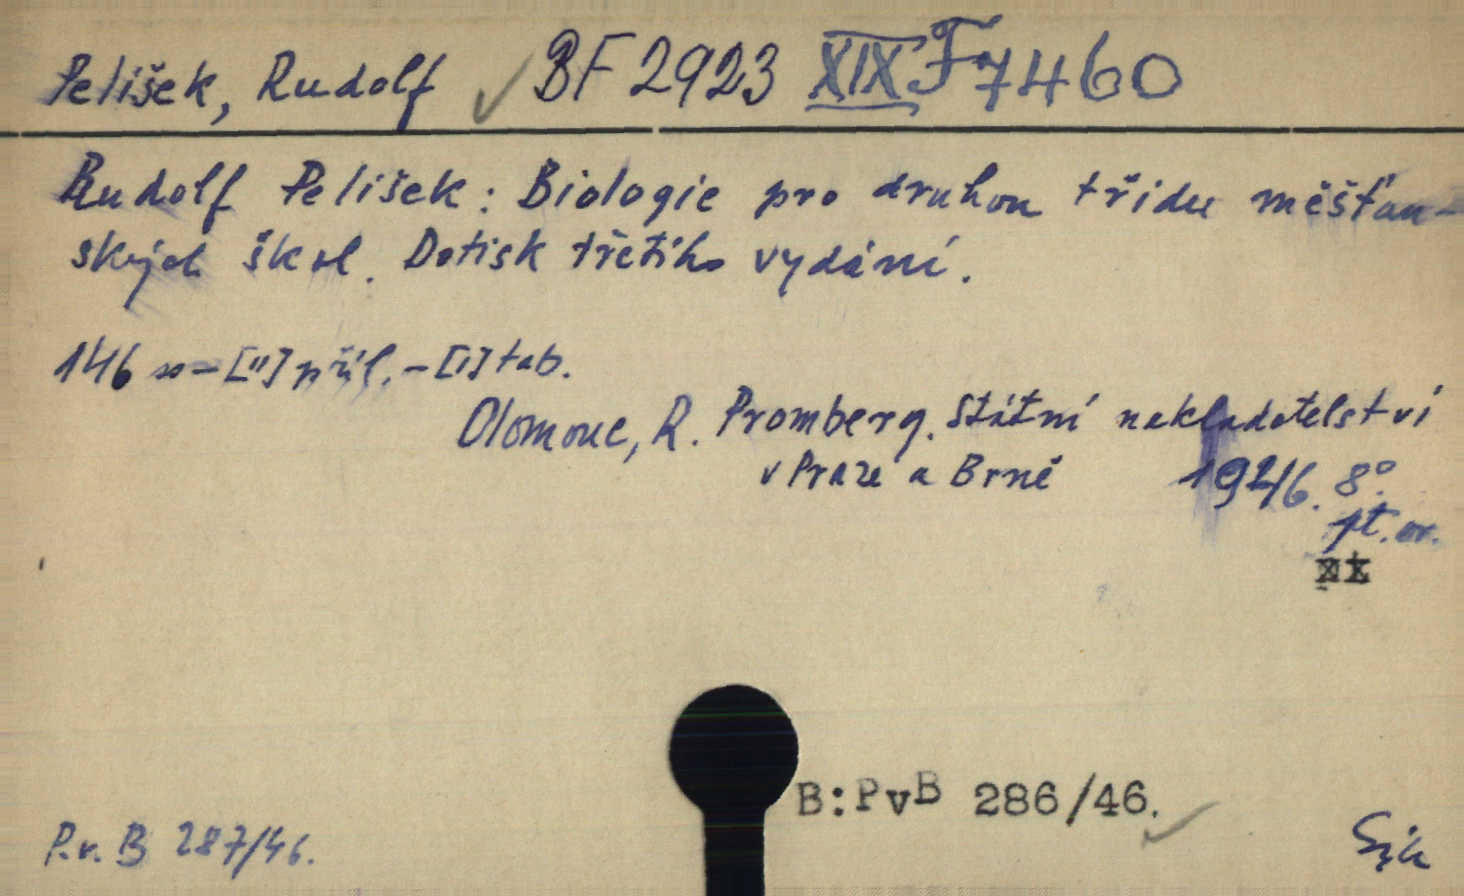 Pelíšek, Rudolf ✓ BF 2923 XIX F 7460
Rudolf Pelíšek: Biologie pro druhou třídu měšťan-
ských škol. Dotisk třetího vydání.
146 s - [II] příl. - [I] tab.
Olomouc, R. Promberg. Státní nakladatelství
v Praze a Brně 1946. 8°.
pt.
B:PvB 286/46.
P.v. B 287/46.